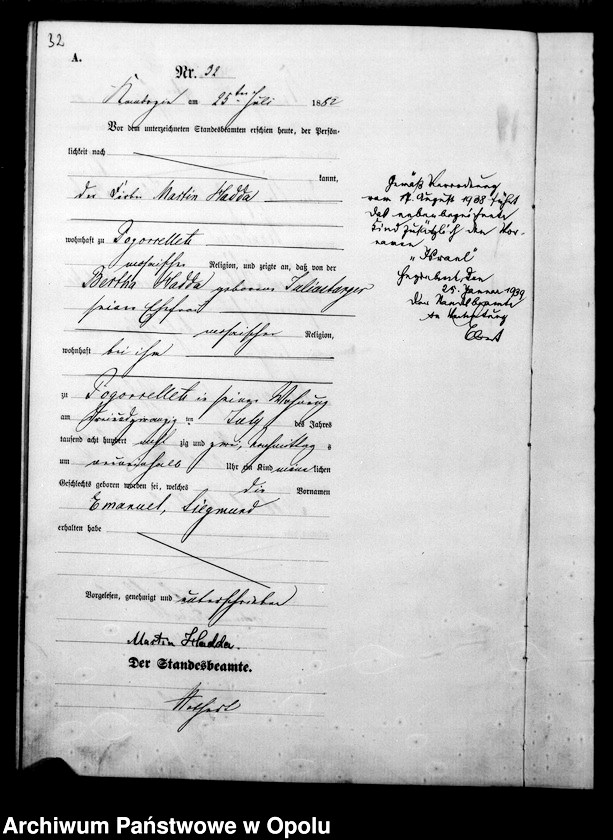 32
A.
Nr. 32
am 25ten Juli 1882
Vor dem unterzeichneten Standesbeamten erschien heute, der Persön-
lichkeit nach
kannt,
der Martin Hadda
wohnhaft zu Pogorrelletz
mosaischer Religion, und zeigte an, daß von der
Bertha Hadda geborenen
seiner Ehefrau
mosaischer Religion,
wohnhaft bei ihm
zu Pogorrelletz in seiner Wohnung
am dreiundzwanzig ten July des Jahres
tausend acht hundert acht zig und zwei, nachmittag s
um Uhr ein Kind männ lichen
Geschlechts geboren worden sei, welches die Vornamen
Emanuel, Siegmund
erhalten habe
Vorgelesen, genehmigt und unterschrieben
Martin Hadda.
Der Standesbeamte.
Gemäß Verordnung
vom 17. August 1938 führt
das nebenbezeichnete
Kind zusätzlich den Vor-
namen
„Israel"
den
25. Januar 1939
Der Standesbeamte
In Vertretung
Archiwum Państwowe w Opolu